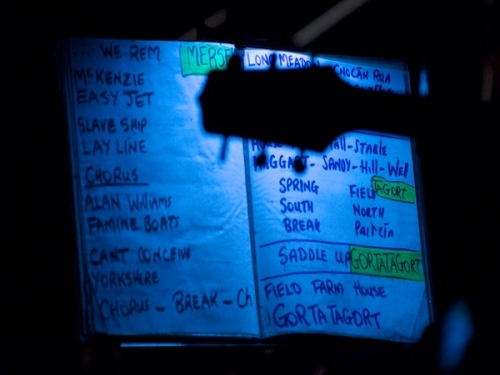 ... WE REM MERSE
McKENZIE
EASY JET
SLAVE SHIP
LAY LINE
CHORUS
ALAN Williams
FAMINE BOATS
CANT CONCEIVE
YORKSHIRE
CHORUS - BREAK - Ch
LONG MEADO CNOCAN RUA
HAGGART - SANDY-Hill-Well
SPRING FIELD TAGORT
SOUTH NORTH
BREAK
SADDLE UP GORTATAGORT
FIELD FARM HOUSE
GORTATAGORT